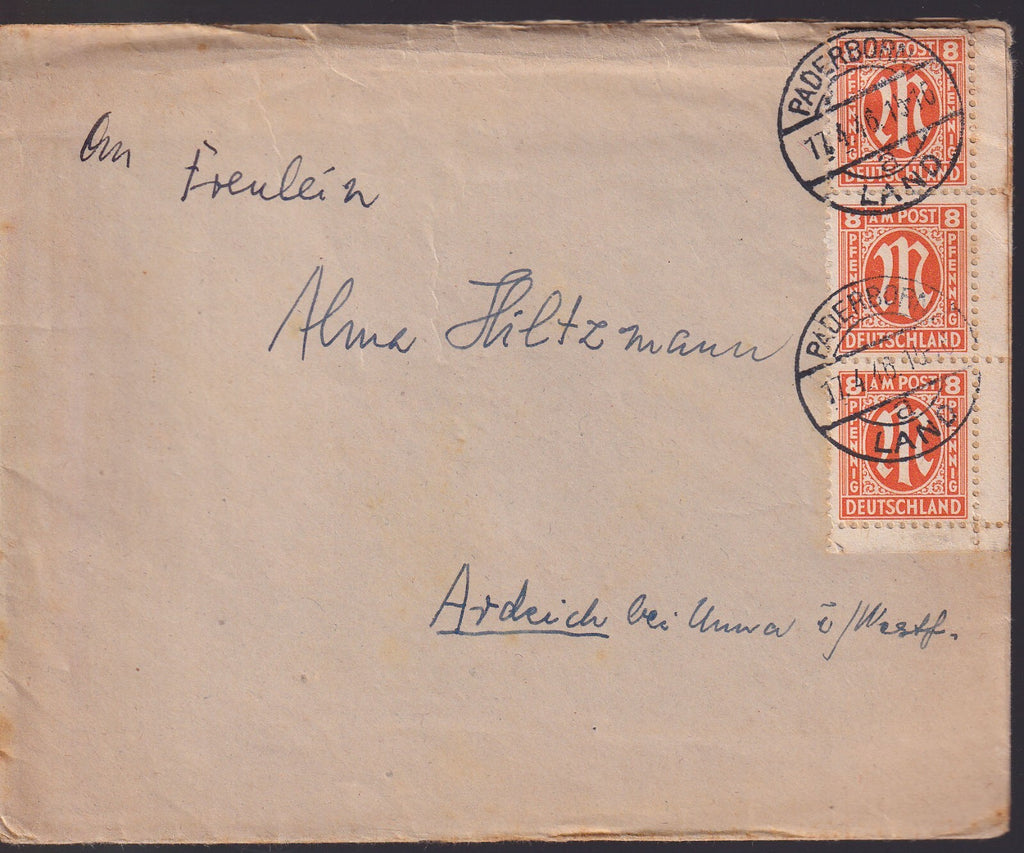 An
Freulein
Alma Hiltzmann
Ardeich bei Unna i/Westf.
AM POST 8
PFENNIG PFENNIG
DEUTSCHLAND
8 AM POST 8
PFENNIG PFENNIG
DEUTSCHLAND
8 AM POST 8
PFENNIG PFENNIG
DEUTSCHLAND
PADERBORN
17.4.46.
a
LAND
PADERBORN
17.4.46.
a
LAND